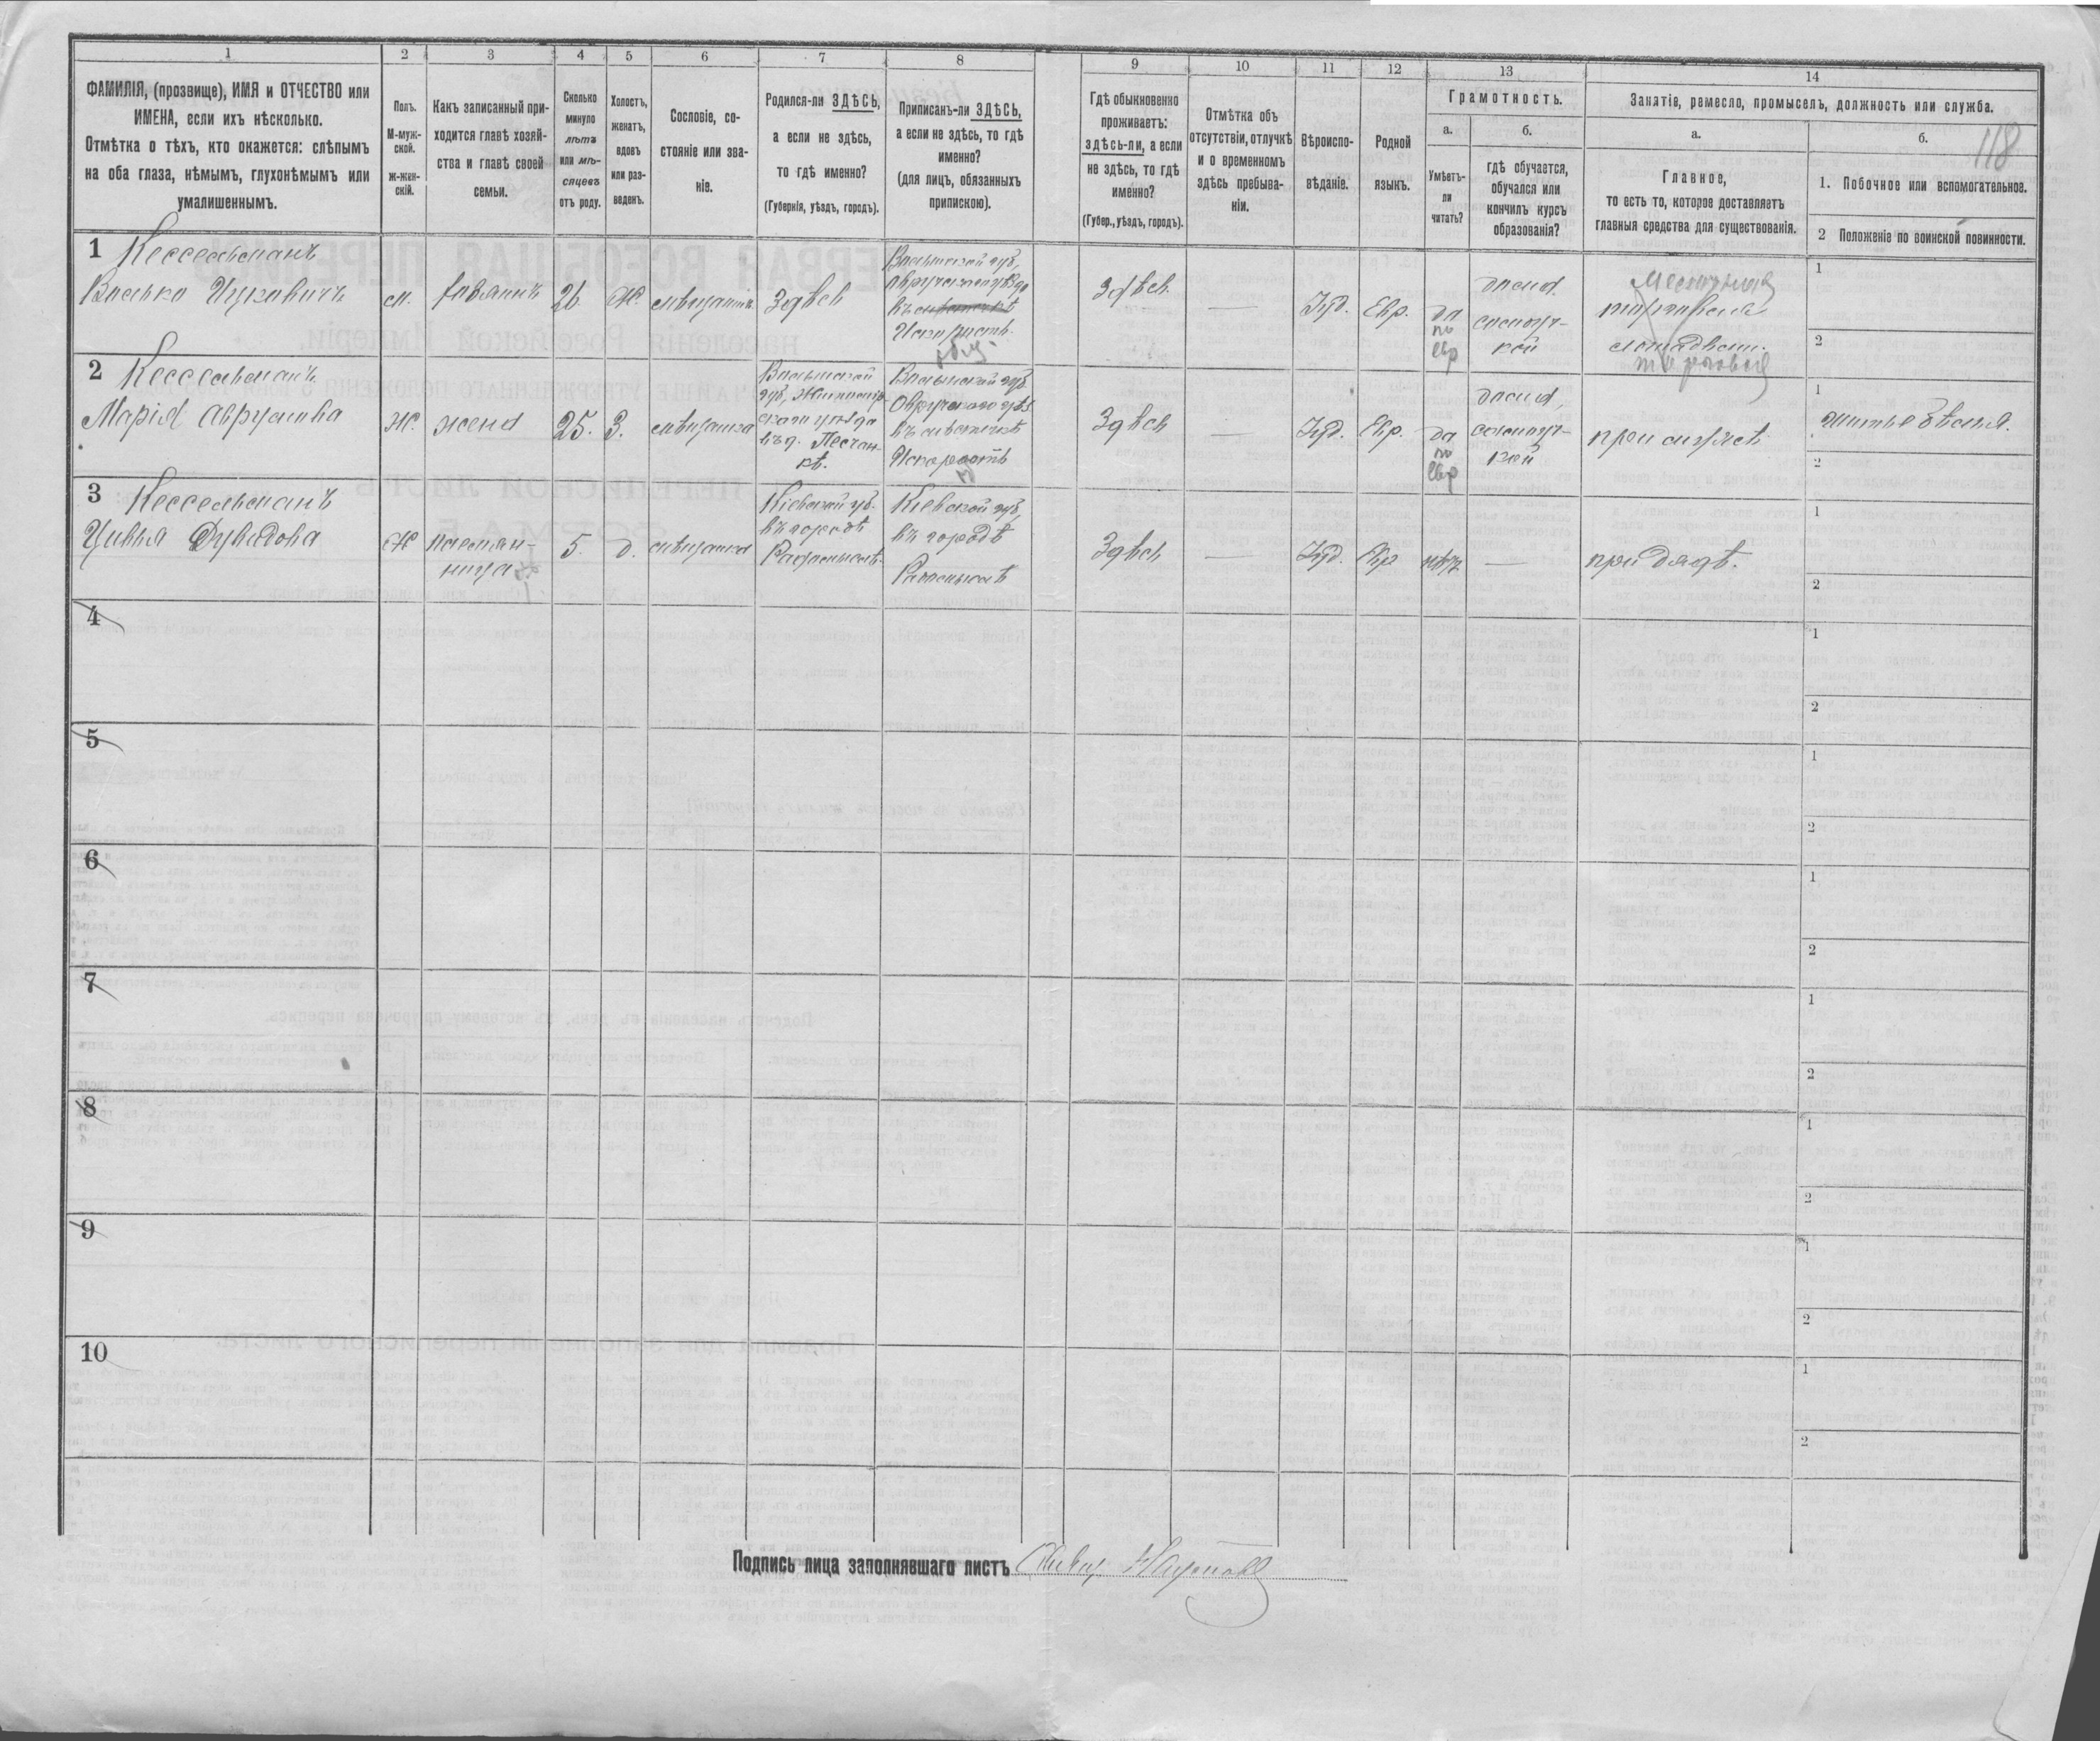 1 2 3 4 5 6 7 8 9 10 11 12 13 14
ФАМИЛІЯ, (прозвище), ИМЯ и ОТЧЕСТВО или
ИМЕНА, если ихъ нѣсколько.
Отмѣтка о тѣхъ, кто окажется: слѣпымъ
на оба глаза, нѣмымъ, глухонѣмымъ или
умалишеннымъ.
Полъ.
М-муж-
ской.
ж-жен-
скій.
Какъ записанный при-
ходится главѣ хозяй-
ства и главѣ своей
семьи.
Сколько
минуло
лѣтъ
или мѣ-
сяцевъ
отъ роду.
Холостъ,
женатъ,
вдовъ
или раз-
веденъ.
Сословіе, со-
стояніе или зва-
ніе.
Родился-ли ЗДѢСЬ,
а если не здѣсь,
то гдѣ именно?
(Губернія, уѣздъ, городъ).
Приписанъ-ли ЗДѢСЬ,
а если не здѣсь, то гдѣ
именно?
(для лицъ, обязанныхъ
припискою).
Гдѣ обыкновенно
проживаетъ:
здѣсь-ли, а если
не здѣсь, то гдѣ
именно?
(Губер., уѣздъ, городъ).
Отмѣтка объ
отсутствіи, отлучкѣ
и о временномъ
здѣсь пребыва-
ніи.
Вѣроиспо-
вѣданіе.
Родной
языкъ.
Грамотность.
а.
Умѣетъ-
ли
читать?
б.
гдѣ обучается,
обучался или
кончилъ курсъ
образованія?
Занятіе, ремесло, промыселъ, должность или служба.
а.
Главное,
то есть то, которое доставляетъ
главныя средства для существованія.
б.
118
1. Побочное или вспомогательное.
2 Положеніе по воинской повинности.
1 Кессельманъ
Волько Ицковичъ
м.
хозяинъ
26
Ж.
мѣщанинъ
Здѣсь
Волынской губ,
Овручскаго уѣзда
въ мѣстечкѣ
Искорость
Здѣсь
—
Іуд.
Евр.
да
по
евр
дома.
торговля
лошадьми.
1
2
2 Кессельманъ
Марія Аврумова
Ж.
жена
25.
З.
мѣщанка
Волынской
губ, Житомир-
скаго уѣзда
въ д. Песчан-
кѣ.
Волынской губ
Овручскаго уѣз
въ мѣстечкѣ
Искорость
Здѣсь
—
Іуд.
Евр.
да
по
евр
дома,
при мужѣ
1
шитье бѣлья.
2
3 Кессельманъ
Цивья Дувидова
Ж
племян-
ница
5.
д.
мѣщанка
Кіевской губ.
въ городѣ
Радомыслѣ
Кіевской губ,
въ городѣ
Радомыслѣ
Здѣсь
—
Іуд.
Евр
нѣтъ
—
при дядѣ.
1
2
4
1
2
5
1
2
6
1
2
7
1
2
8
1
2
9
1
2
10
1
2
Подпись лица заполнявшаго листъ